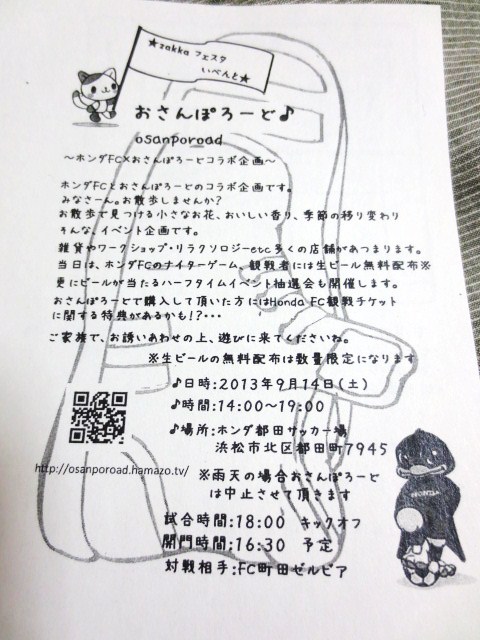 ★zakka フェスタ
いべんと★
おさんぽろーど♪
osanporoad
～ホンダFC×おさんぽろーどコラボ企画～
ホンダFCとおさんぽろーどのコラボ企画です。
みなさーん。お散歩しませんか?
お散歩で見つける小さなお花、おいしい香り、季節の移り変わり
そんな、イベント企画です。
雑貨やワークショップ・リラクソロジーetc多くの店舗があつまります。
当日は、ホンダFCのナイターゲーム。観戦者には生ビール無料配布※
更にビールが当たるハーフタイムイベント抽選会も開催します。
おさんぽろーどで購入して頂いた方にはHonda FC観戦チケット
に関する特典があるかも!?・・・
ご家族で、お誘いあわせの上、遊びに来てくださいね。
※生ビールの無料配布は数量限定になります
♪日時:2013年9月14日(土)
♪時間:14:00～19:00
♪場所:ホンダ都田サッカー場
浜松市北区都田町7945
http://osanporoad.hamazo.tv/
※雨天の場合おさんぽろーど
は中止させて頂きます
HONDA
試合時間:18:00 キックオフ
開門時間:16:30 予定
対戦相手:FC町田ゼルビア